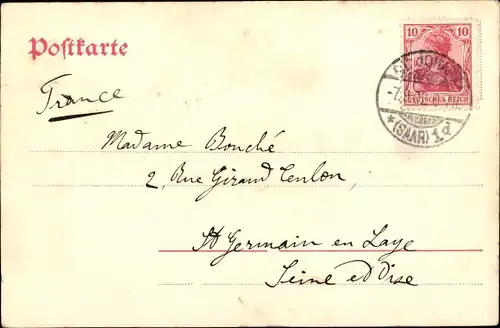 Postkarte
10 10
DEUTSCHES REICH
* (SAAR) 1d
France
Madame Bouché
2, Rue Giraud
St Germain en Laye
Seine et Oise